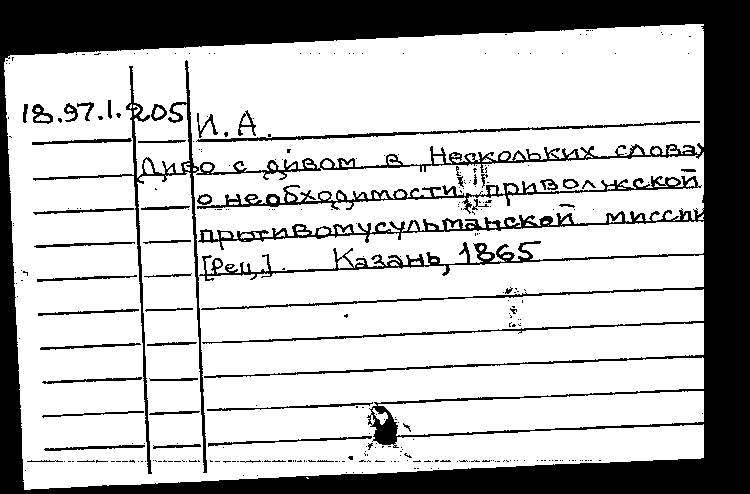 18.97.1.205
И. А.
Диво с дивом в „Нескольких словах
о необходимости приволжской
противомусульманской миссии
[Рец.] Казань, 1865